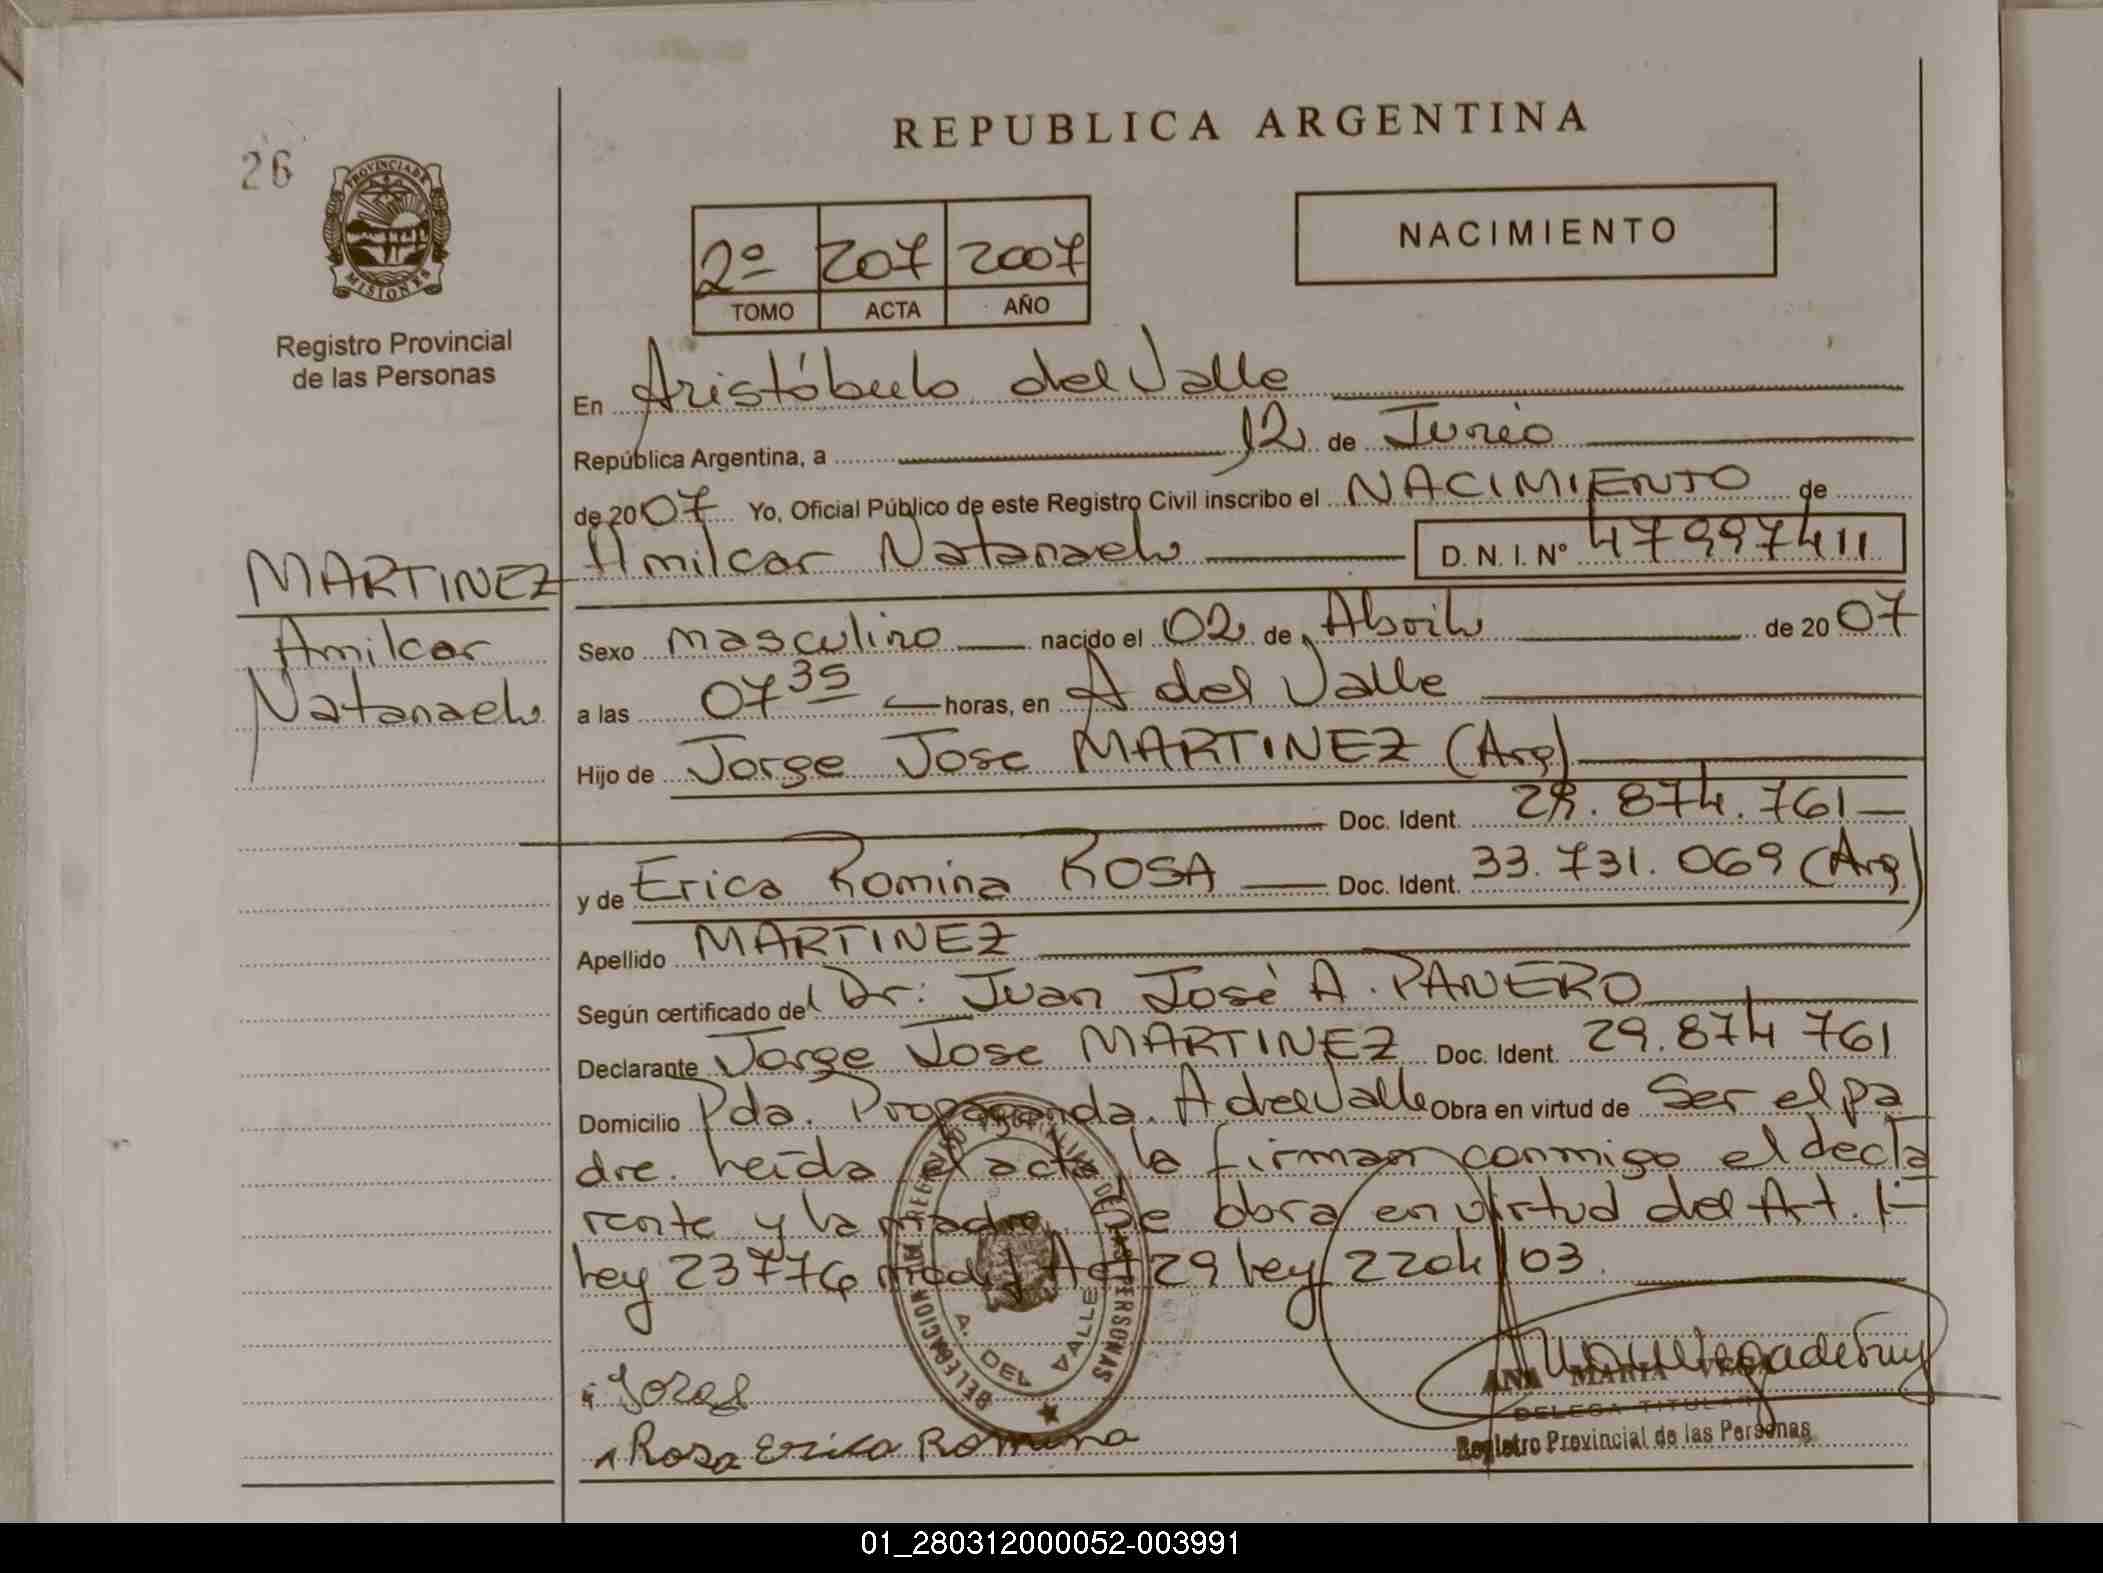 REPUBLICA ARGENTINA
26
PROVINCIA DE
MISIONES
Registro Provincial
de las Personas
2º 207 2007
TOMO ACTA AÑO
NACIMIENTO
En Aristóbulo del Valle
República Argentina, a 12 de Junio
de 2007 Yo, Oficial Público de este Registro Civil inscribo el NACIMIENTO de
Amilcar Natanael D. N. I. Nº 47997411
MARTINEZ
Amilcar
Natanael
Sexo masculino nacido el 02 de Abril de 2007
a las 07 35 horas, en A del Valle
Hijo de Jorge Jose MARTINEZ (Arg)
Doc. Ident. 29.874.761
y de Erica Romina ROSA Doc. Ident. 33.731.069 (Arg)
Apellido MARTINEZ
Según certificado del Dr: Juan José A. PANERO
Declarante Jorge Jose MARTINEZ Doc. Ident. 29.874 761
Domicilio Pda. Propaganda. A del Valle Obra en virtud de Ser el pa
dre. Leída el acta la firman conmigo el decla
rante y la madre. Se obra en virtud del Art. 1º
Ley 23776 modif Art 29 Ley 2204/03.
DELEGACION REGISTRO PROVINCIAL DE LAS PERSONAS
A. DEL VALLE
Jorge
Rosa Erica Romina
ANA MARIA
DELEGA TITULAR
Registro Provincial de las Personas
01_280312000052-003991